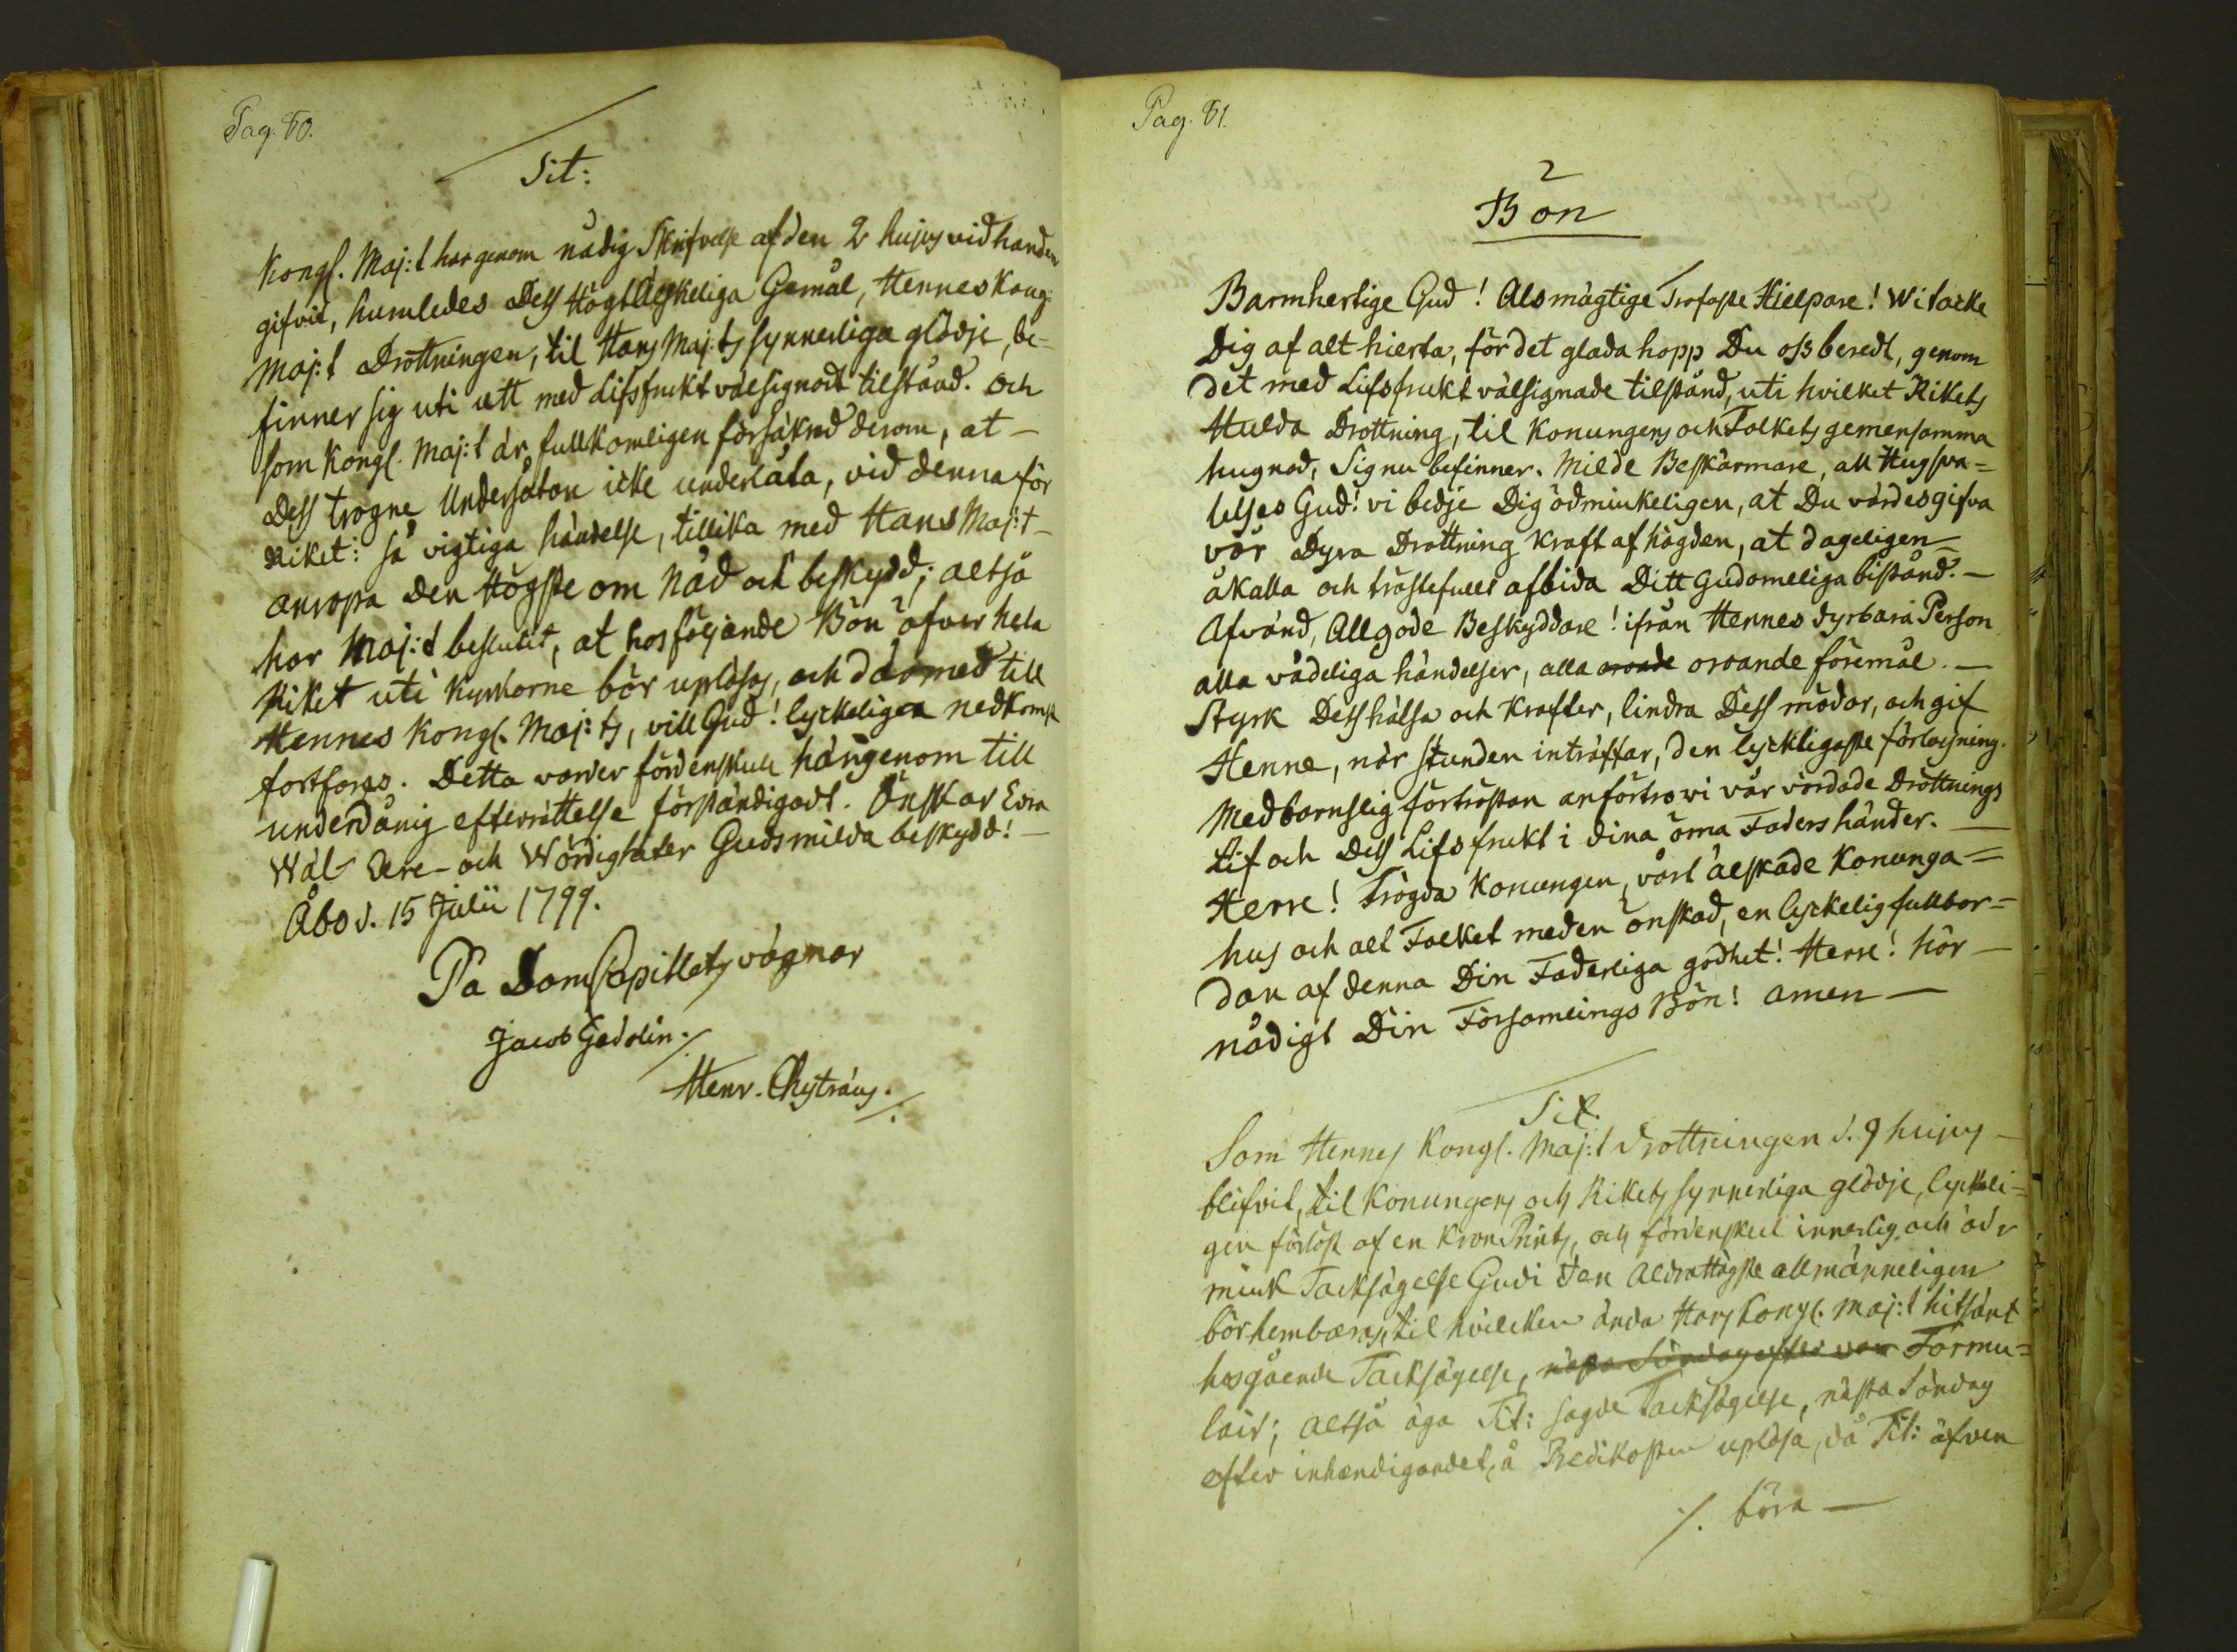 Pag. 80.
Tit:
Kongl. Maj:t har genom nådig Skrifvelse af den 2 hujus vid handen
gifvit, huruledes Dess Högt Älskeliga Gemål, Hennes Kongl.
Maj:t Drottningen, til Hans Maj:ts synnerliga glädje, be-
finner sig uti ett med Lifsfrukt välsignadt tilstånd. Och
som Kongl. Maj:t är fullkomligen försäkrad derom, at —
Dess trogne Undersåtare icke underlåta, vid denna för
Riket: så vigtiga händelse, tillika med Hans Maj:t —
anropa Den Högste om Nåd och beskydd; altså
har Maj:t beslutit, at hosföljande Bön öfver hela
Riket uti Kyrkorne bör upläsas, och därmed till
Hennes Kongl. Maj:ts, vill Gud! lyckeligen nedkomst
fortfares. Detta warder fördenskull härigenom till
underdånig efterrättelse förständigadt. Önskar Edra
Wäl- Ære- och Wördigheter Guds milda beskydd! —
Åbo d. 15 Julii 1799.
På DomCapitlets vägnar
Jacob Gadolin ./.
Henr. Chytræus. ./.
Pag. 81.
2
Bön
Barmhertige Gud! Alsmägtige Trofaste Hielpare! Wi tacke
Dig af alt hierta, för det glada hopp Du oss beredt, genom
det med Lifsfrukt välsignade tilstånd, uti hvilket Rikets
Hulda Drottning, til Konungens och Folkets gemensamma
hugnad, Sig nu befinner. Milde Beskärmare, all Hugsva=
lelses Gud! vi bedje Dig ödmiukeligen, at Du värdes gifva
vår Dyra Drottning kraft af högden, at dageligen —
åkalla och tröstefullt afbida Ditt Gudomeliga bistånd. —
Afvänd, Allgode Beskyddare! ifrån Hennes dyrbara Person
alla vådeliga händelser, alla oroande föremål. —
Styrk Dess hälsa och krafter, lindra Dess mödor, och gif
Henne, när stunden inträffar, den lyckligaste förlossning.
Med barnslig förtröstan anförtro wi vår vördade Drottnings
Lif och Dess Lifsfrukt i dina öma Faders händer. —
Herre! Frögda Konungen, vårt älskade Konunga=
hus och alt Folket med en önskad, en lyckelig fullbor=
dan af denna Din Faderliga godhet! Herre! hör —
nådigt Din Församlings Bön! Amen —
Tit.
Som Hennes Kongl. Maj:t Drottningen d. 9 hujus —
blifvit, til Konungens och Rikets synnerliga glädje, lyckeli=
gen förlöst af en Kron Prints, och fördenskul innerlig och öd
miuk Tacksägelse Gudi den Aldrahögste allmänneligen
bör hembæras, til hvilcken ända Hans Kongl. Maj:t hitsändt
hosgående Tacksägelse, nästa Söndag efter Formu=
lair; altså äga Tit: sagde Tacksägelse, nästa Söndag
efter inhændigandet, å Predikostolen uplæsa, då Tit: äfven
./. böra —